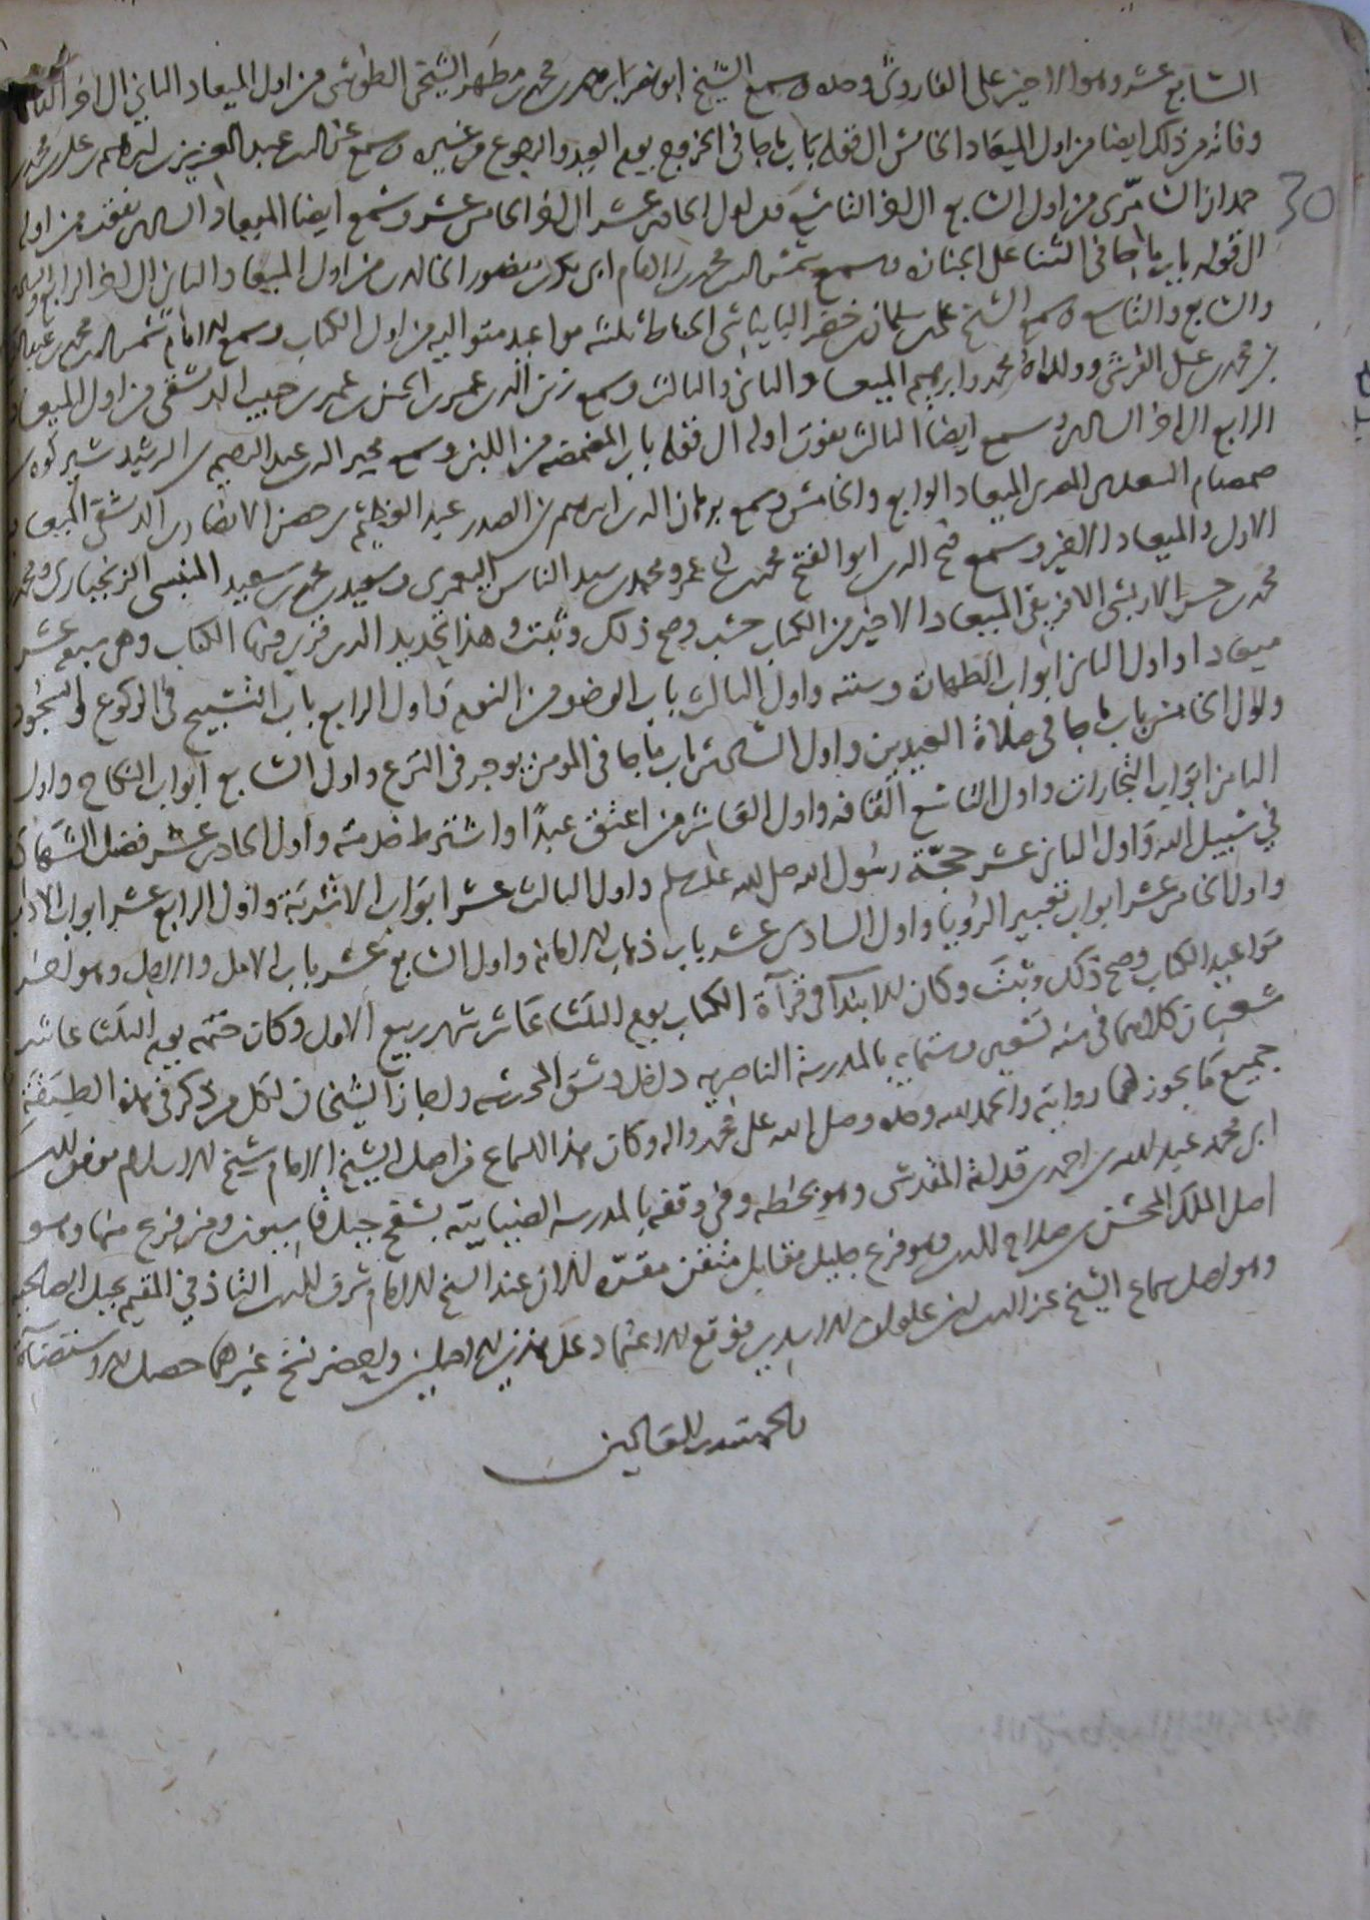 السابع عشر وهو الاخير على الفاروثي وحده وسمع الشيخ ابو نصر ابرهيم بن محمد بن مطهر الشيخي الطوسي من اول الميعاد الثاني الى اخر
وفاته من ذلك ايضا من اول الميعاد الخامس الى قوله باب ما جا في الخروج يوم العيد والرجوع من غيره وسمع عبد العزيز بن ابرهيم بن علي بن محمد
حمدان من اول السابع الى اخر التاسع ومن اول الحادي عشر الى اخر الخامس عشر وسمع ايضا الميعاد السادس بفوت من اوله
الى قوله باب ما جا في الثنا على الجنازه وسمع شمس الدين محمد بن الامام ابي بكر بن منصور الخالدي من اول الميعاد الثاني الى اخر الرابع
والسابع والتاسع وسمع الشيخ علي بن سلمان بن خضر الخياط ثلثة مواعيد متواليه من اول الكتاب وسمع الامام شمس الدين محمد بن
بن محمد بن علي القرشي وولداه محمد وابرهيم الميعاد الثاني والثالث وسمع زين الدين عمر بن الحسن بن عمر بن حبيب الدمشقي من اول الميعاد
الرابع الى اخر السادس وسمع ايضا الثالث بفوت اوله الى قوله باب المضمضة من اللبن وسمع مجير الدين عبد الرحيم بن الرشيد شيركوه بن
صمصام السعدي المصري الميعاد الرابع والخامس وسمع برهان الدين ابرهيم بن الصدر عبد العظيم بن حصن الانصاري الدمشقي الميعاد
الاول والميعاد الاخير وسمع فتح الدين ابو الفتح محمد بن ابي عمرو محمد بن سيد الناس اليعمري وسعيد بن محمد بن سعيد الزنجباري ومحمد
محمد بن حسن الافريقي الميعاد الاخير من الكتاب حسب وصح ذلك وثبت وهذا تحديد الذي قري فيها الكتاب وهي سبع عشر
ميعادا اول الثاني ابواب الطهارة وسننه واول الثالث باب الوضو من النوم واول الرابع باب التسبيح في الركوع والسجود
واول الخامس باب ما جا في صلاة العيدين واول السادس باب ما جا في المومن يوجر في النزع واول السابع ابواب النكاح واول
الثامن ابواب التجارات واول التاسع القافه واول العاشر من اعتق عبدا واشترط خدمته واول الحادي عشر فضل الشهادة
في سبيل الله واول الثاني عشر حجة رسول الله صلى الله عليه وسلم واول الثالث عشر ابواب الاشربة واول الرابع عشر ابواب الاداب
واول الخامس عشر ابواب تعبير الرؤيا واول السادس عشر باب ذهاب الامانه واول السابع عشر باب الامل والاجل وهو اخر
مواعيد الكتاب وصح ذلك وثبت وكان الابتدا في قرآة الكتاب يوم الثلثا عاشر شهر ربيع الاول وكان ختمه يوم الثلثا عاشر
شعبان كلاهما في سنه تسعين وستمايه بالمدرسة الناصريه داخل دمشق المحروسه واجاز الشيخان لكل من ذكر في هذه الطبقة
جميع ما يجوز لهما روايته والحمد لله وحده وصلى الله على محمد واله وكان هذا السماع من اصل الشيخ الامام شيخ الاسلام موفق الدين
ابي محمد عبد الله بن احمد بن قدامة المقدسي وهو بخطه وفي وقفه بالمدرسه الضيائيه بسفح جبل قاسيون ومن فرع منها وهو
اصل الملك المحسن بن صلاح الدين وهو فرع جليل مقابل متقن مقره الان عند الشيخ الامام شرف الدين المقيم بجبل الصالحيه
وهو اصل سماع الشيخ عز الدين بن علوان فوقع الاعتماد على هذين الاصلين وبعض نسخ غيرهما حصل الاستضآة
والحمد لله رب العالمين
30